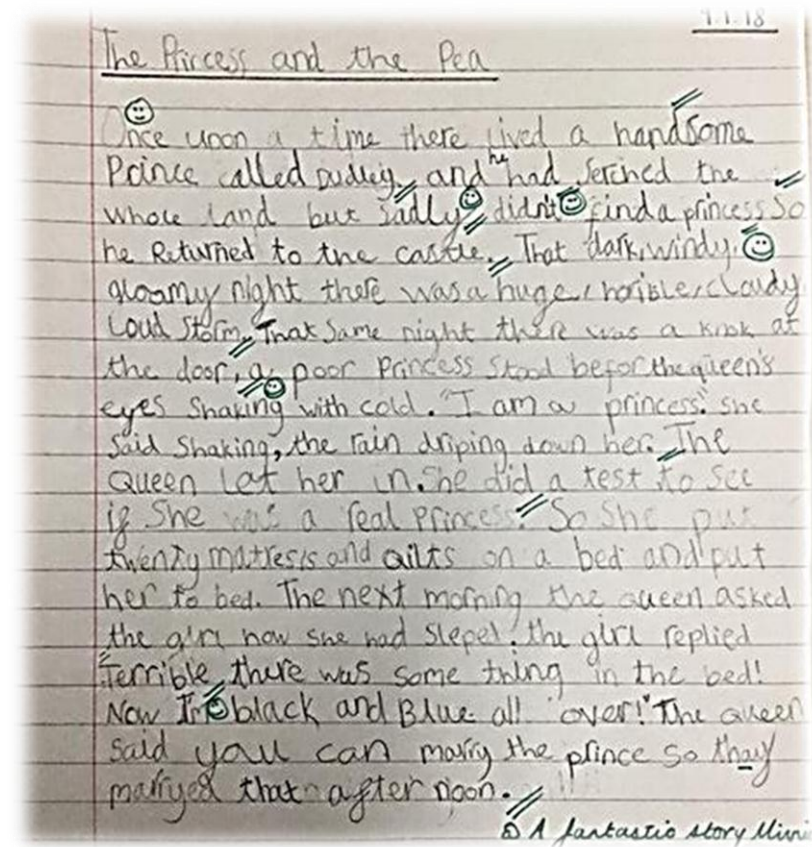 9.1.18
The Princess and the Pea
Once upon a time there lived a handsome
Prince called Dudley, and he had serched the
whole land but sadly didn't find a princess So
he Returned to the castle. That dark, windy,
gloomy night there was a huge, horible, cloudy
loud storm. That same night there was a knok at
the door, a poor Princess stood befor the queen's
eyes shaking with cold. "I am a princess" she
said shaking, the rain driping down her. The
Queen let her in. She did a test to see
if She was a real princess. So she put
twenty matresis and qilts on a bed and put
her to bed. The next morning the queen asked
the girl how she had slepet. the girl replied
"Terrible, there was some thing in the bed!
Now I'm black and Blue all over!" The queen
said you can marry the prince so thay
marryed that after noon.
A fantastic story